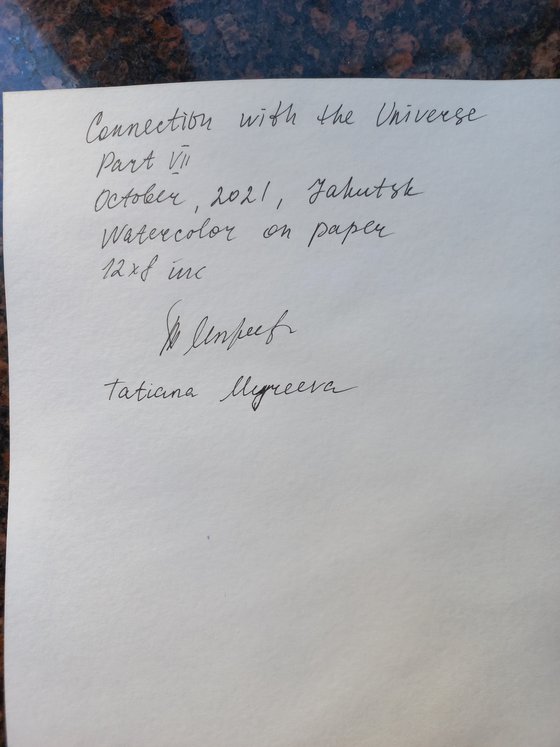 Connection with the Universe
Part VII
October, 2021, Jakutsk
Watercolor on paper
12x8 inc
Tatiana